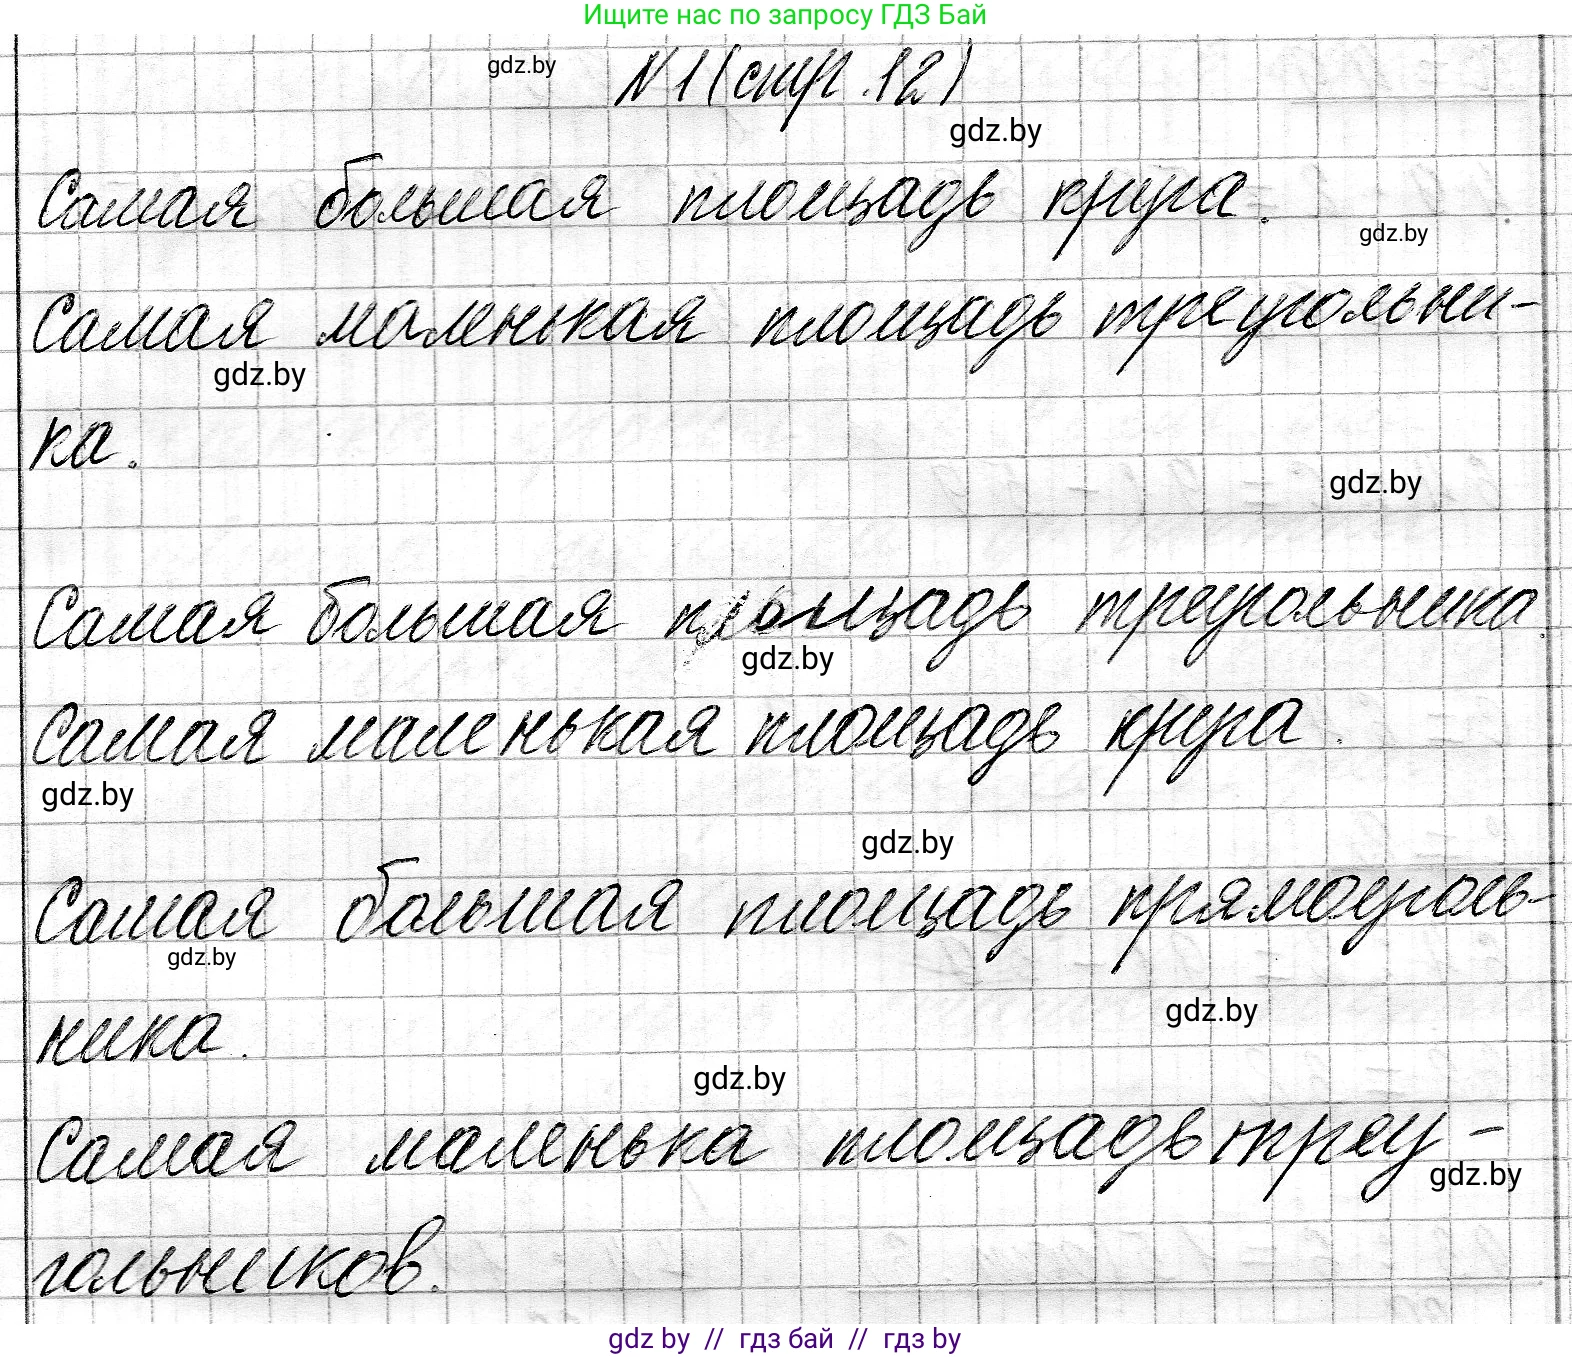 Ищите нас по запросу ГДЗ Бай
gdz.by
N 1 (стр. 12)
gdz.by
Самая большая площадь круга.
gdz.by
Самая маленькая площадь треугольни-
gdz.by
ка.
gdz.by
Самая большая площадь треугольника.
gdz.by
Самая маленькая площадь круга.
gdz.by
gdz.by
Самая большая площадь прямоуголь-
gdz.by
ника.
gdz.by
gdz.by
Самая маленька площадь треу-
gdz.by
гольников.
gdz by // гдз бай // гдз by